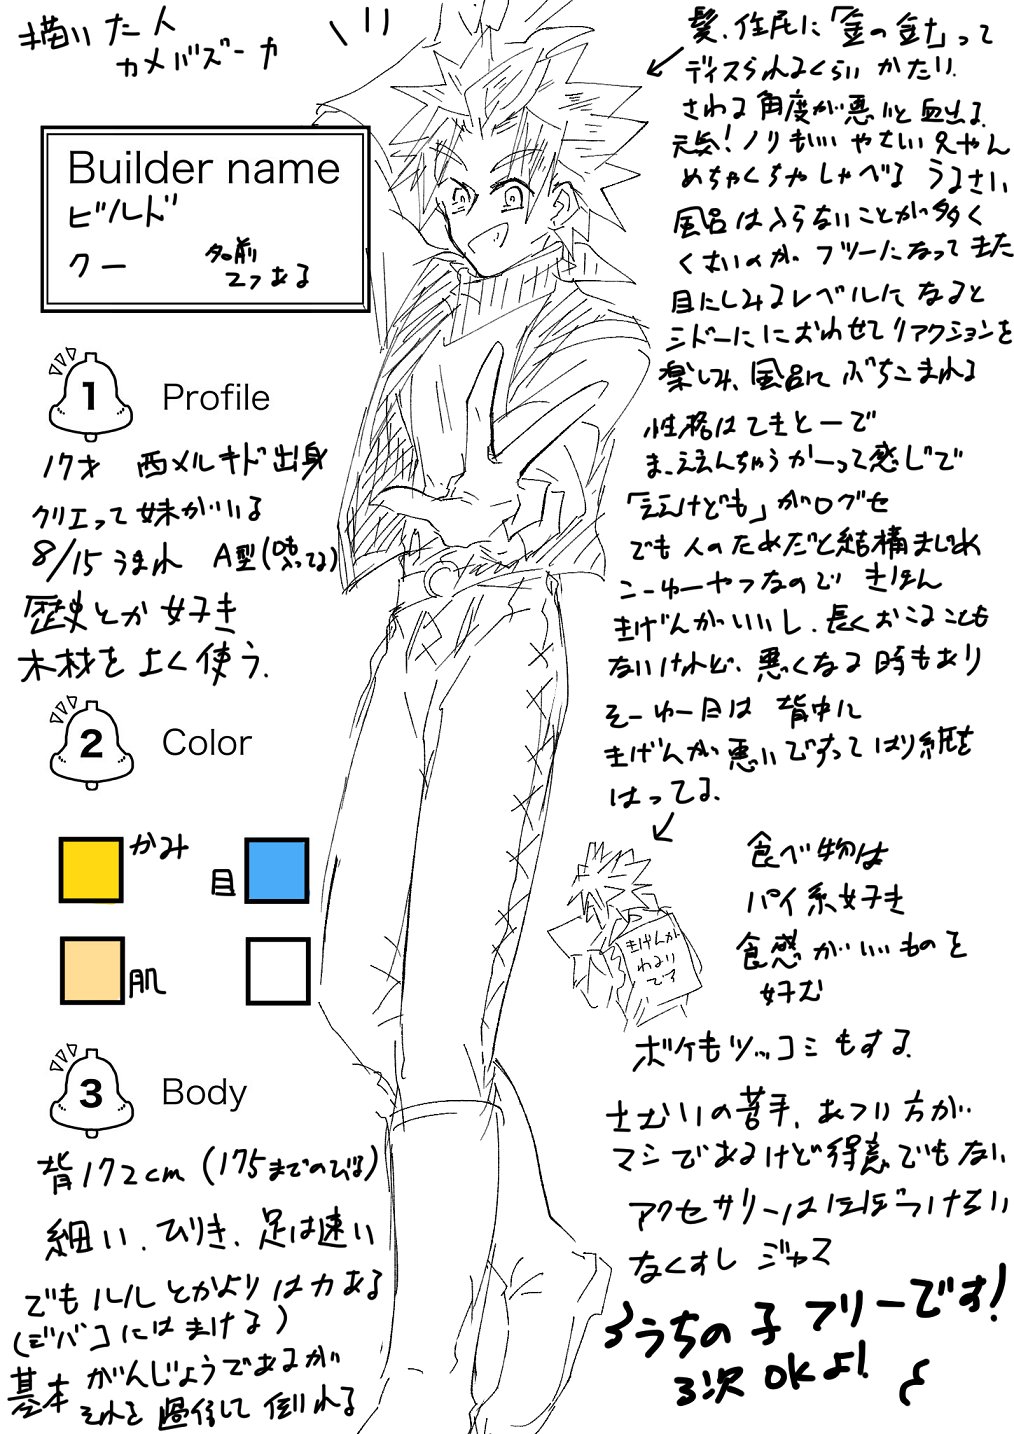 描いた人
カメバズーカ
Builder name
ビルド
クー
名前
2つある
1 Profile
17才 西メルキド出身
クリエって妹がいる
8/15うまれ A型(吸ってる)
歴史とか好き
木材をよく使う.
2 Color
かみ
目
肌
3 Body
背172cm (175までのびる)
細い、ひりき、足は速い
でもルルとかよりは力ある
(ジバコにはまける)
基本がんじょうであるが
それを過信して倒れる
髪、住民に「金の針」って
ディスられるくらいかたい.
さわる角度が悪いと血出る.
元気!ノリもいいやさしい兄やん
めちゃくちゃしゃべる うるさい
風呂は入らないことが多く
くさいのがフツーになってきた
目にしみるレベルになると
シドーににおわせてリアクションを
楽しみ、風呂にぶちこまれる
性格はてきとーで
ま、ええんちゃうかーって感じで
「ええけども」が口グセ
でも人のためだと結構まじめ
こーゆーやつなので きほん
きげんがいいし、長くおこることも
ないけれど、悪くなる時もあり
そーゆー日は 背中に
きげんが悪いですってはり紙を
はってる.
きげんが
わるい
です
食べ物は
パイ系好き
食感がいいものを
好む
ボケもツッコミもする.
さむいの苦手、あつい方が
マシであるけど得意でもない
アクセサリーはほぼつけない
なくすし ジャマ
うちの子フリーです!
3次OKよ!